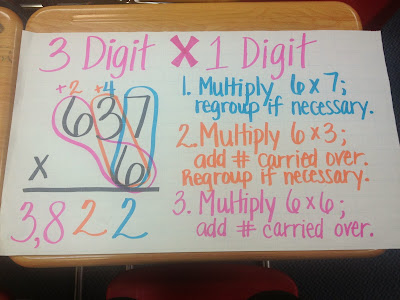 3 Digit X 1 Digit
+2 +4
637
x 6
3,822
1. Multiply 6x7;
regroup if necessary.
2. Multiply 6x3;
add # carried over.
Regroup if necessary.
3. Multiply 6x6;
add # carried over.